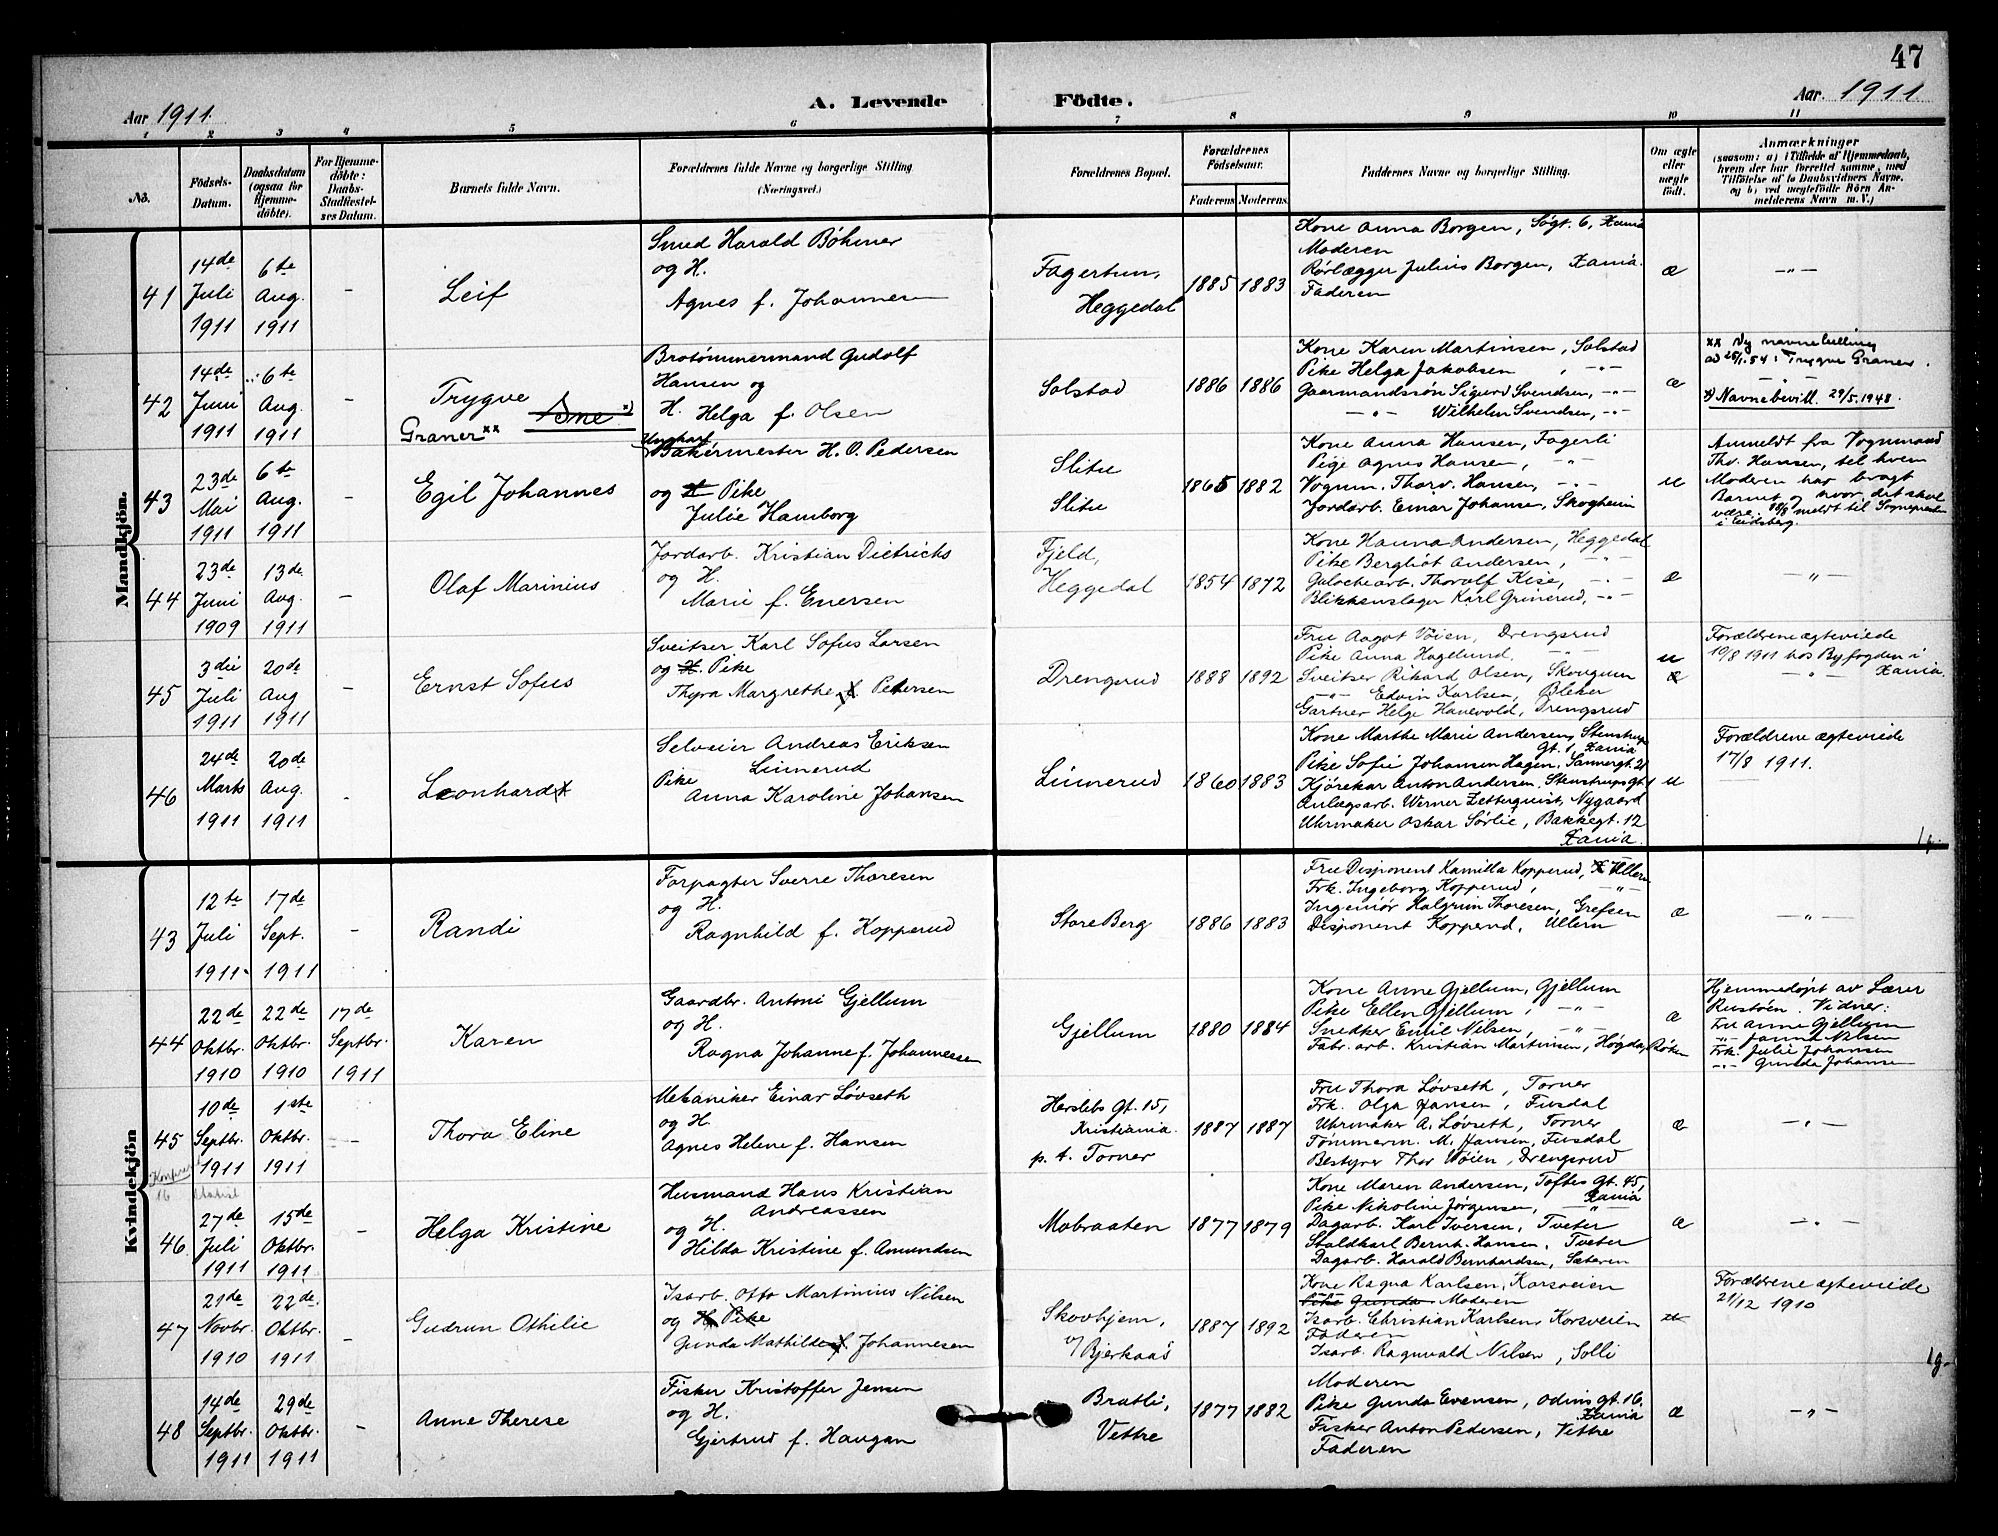 47
Aar 1911.
A. Levende
Födte.
Aar. 1911
1 2 3 4 5 6 7 8 9 10 11
No.
Födsels-
Datum.
Daabsdatum
(ogsaa for
Hjemme-
döbte).
For Hjemme-
döbte:
Daabs-
Stadfæstel-
ses Datum.
Barnets fulde Navn.
Forældrenes fulde Navne og borgerlige Stilling
(Næringsvei.)
Forældrenes Bopæl.
Forældrenes
Födselsaar.
Faderens Moderens.
Faddernes Navne og borgerlige Stilling.
Om ægte
eller
uægte
födt.
Anmærkninger
(saasom: a) i Tilfælde af Hjemmedaab,
hvem der har forrettet samme, med
Tilföielse af to Daabsvidners Navne.
og b) ved uegtefödte Börn An-
melderens Navn m. V.)
Mandkjön.
41
14de
Juli
1911
6te
Aug.
1911
-
Leif
Smed Harald Böhmer
og H.
Agnes f. Johannesen
Fagertun,
Heggedal
1885 1883
Kone Anna Borgen, Søgt. 6, Xania
Moderen
Rørlægger Julius Borgen, Xania.
Faderen
æ
-"-
42
14de
Juni
1911
6te
Aug.
1911
-
Trygve
Arne x)
Graner xx
Brotömmermand Gudolf
Hansen og
H. Helga f. Olsen
Solstad
1886 1886
Kone Karen Martinsen, Solstad
Pike Helga Jakobsen, -"-
Gaarmandssön Sigurd Svendsen, -"-
-"- Wilhelm Svendsen, -"-
æ
xx Ny navnebevilling
ad 25/1.54: Trygve Graner.
-"-
x) Navnebevill. 29/5.1948.
43
23de
Mai
1911
6te
Aug.
1911
-
Egil Johannes
Ungkarl
Bakermester H. O. Pedersen
og H Pike
Julie Hamborg
Slitu
Slitu
1865 1882
Kone Anna Hansen, Fagerli
Pige Agnes Hansen, -"-
Vognm. Thorv. Hansen, -"-
Jordarb. Einar Johansen, Skogheim
u
Anmeldt fra Vognmand
Thv. Hansen, til hvem
Moderen har bragt
Barnet og hvor det skal
være. 10/8 meldt til Sognepresten
i Eidsberg.
44
23de
Juni
1909
13de
Aug.
1911
-
Olaf Marinius
Jordarb. Kristian Dietrichs
og H.
Marie f. Enersen
Fjeld,
Heggedal
1854 1872
Kone Hanna Andersen, Heggedal
Pike Bergliot Andersen, -"-
Galochearb. Thorolf Kise, -"-
Blikkenslager Karl Grinerud, -"-
æ
-"-
45
3die
Juli
1911
20de
Aug
1911
-
Ernst Sofus
Sveitser Karl Sofus Larsen
og H Pike
Thyra Margrethe f. Petersen
Drengsrud
1888 1892
Fru Aagot Vöien, Drengsrud
Pike Anna Hagelund. -"-
Sveitser Rikard Olsen, Skougum
-"- Edvin Karlsen, Bleker
Gartner Helge Hanevold, Drengsrud
u
æ
Forældrene ægteviede
19/8 1911 hos Byfogden i
Xania.
-"-
46
24de
Marts
1911
20de
Aug.
1911
-
Leonhard
Selveier Andreas Eriksen
Linnerud
Pike
Anna Karoline Johansen
Linnerud
1860 1883
Kone Marthe Marie Andersen, Stenstrups
Gt. 1, Xania
Pike Sofie Johansen Hagen, Sannergt. 21
Kjörekar Anton Andersen, Stenstrupsgt. 1
Anlægsarb. Werner Zetterquist, Nygaard
Uhrmaker Oskar Sørlie, Bakkegt. 12
Xania.
u
Forældrene ægteviede
17/8 1911.
Kvindekjön
43
12te
Juli
1911
17de
Sept.
1911
-
Randi
Forpagter Sverre Thoresen
og H.
Ragnhild f. Kopperud
Store Berg
1886 1883
Fru Disponent Kamilla Kopperud, Ullern
Frk. Ingeborg Kopperud, -"-
Ingeniör Halgrim Thoresen, Grefsen
Disponent Kopperud, Ullern
æ
-"-
44
22de
Oktbr.
1910
22de
Oktbr.
1910
17de
Septbr.
1911
Karen
Gaardbr. Antoni Gjellum
og H.
Ragna Johanne f. Johannessen
Gjellum
1880 1884
Kone Anne Gjellum, Gjellum
Pike Ellen Gjellum, -"-
Snedker Emil Nilsen, -"-
Fabr. arb. Kristian Martinsen, Høgda, Röken
æ
Hjemmedøpt av Lærer
Rustöen. Vidner:
Fru Anne Gjellum
-"- Janna Nilsen
Frk. Julie Johansen
-"- Gunda Johanse
45
10de
Septbr.
1911
1ste
Oktbr.
1911
-
Thora Eline
Mekaniker Einar Lövseth
og H.
Agnes Helene f. Hansen
Herslebs Gt. 15,
Kristiania.
p. t. Torner
1887 1887
Fru Thora Lövseth, Torner
Frk. Olga Jansen, Fusdal
Uhrmaker A. Lövseth, Torner
Tömmerm. M. Jansen, Fusdal
Bestyrer Thor Vöien, Drengsrud
æ
-"-
46
27de
Juli
1911
15de
Oktbr.
1911
-
Helga Kristine
Husmand Hans Kristian
Andreassen
og H.
Hilda Kristine f. Amundsen
Mobraaten
1877 1879
Kone Maren Andersen, Toftes Gt. 45,
Xania
Pike Nikoline Jörgensen, -"-
Dagarb. Karl Iversen, Tveter
Staldkarl Bernt Hansen, Tveter
Dagarb. Harald Bernhardsen, Sæteren
æ
-"-
47
21de
Novbr.
1910
22de.
Oktbr.
1911
-
Gudrun Othilie
Isarb. Otto Martinius Nilsen
og H Pike
Gunda Mathilde f. Johannesen
Skovhjem,
v/ Bjerkaas
1887 1892
Kone Ragna Karlsen, Korsveien
Pike Gunda Moderen
Isarb. Christian Karlsen, Korsveien
Faderen
Isarb. Ragnvald Nilsen, Solli
u
Forældrene ægteviede
21/12 1910
48
14de
Septbr.
1911
29de
Oktbr.
1911
-
Anne Therese
Fisker Kristoffer Jensen
og H.
Gjertrud f. Haugan
Bratli,
Vettre
1877 1882
Moderen
Pike Gunda Evensen, Odins gt. 16,
Xania
Fisker Anton Pedersen, Vettre
Faderen
æ
-"-